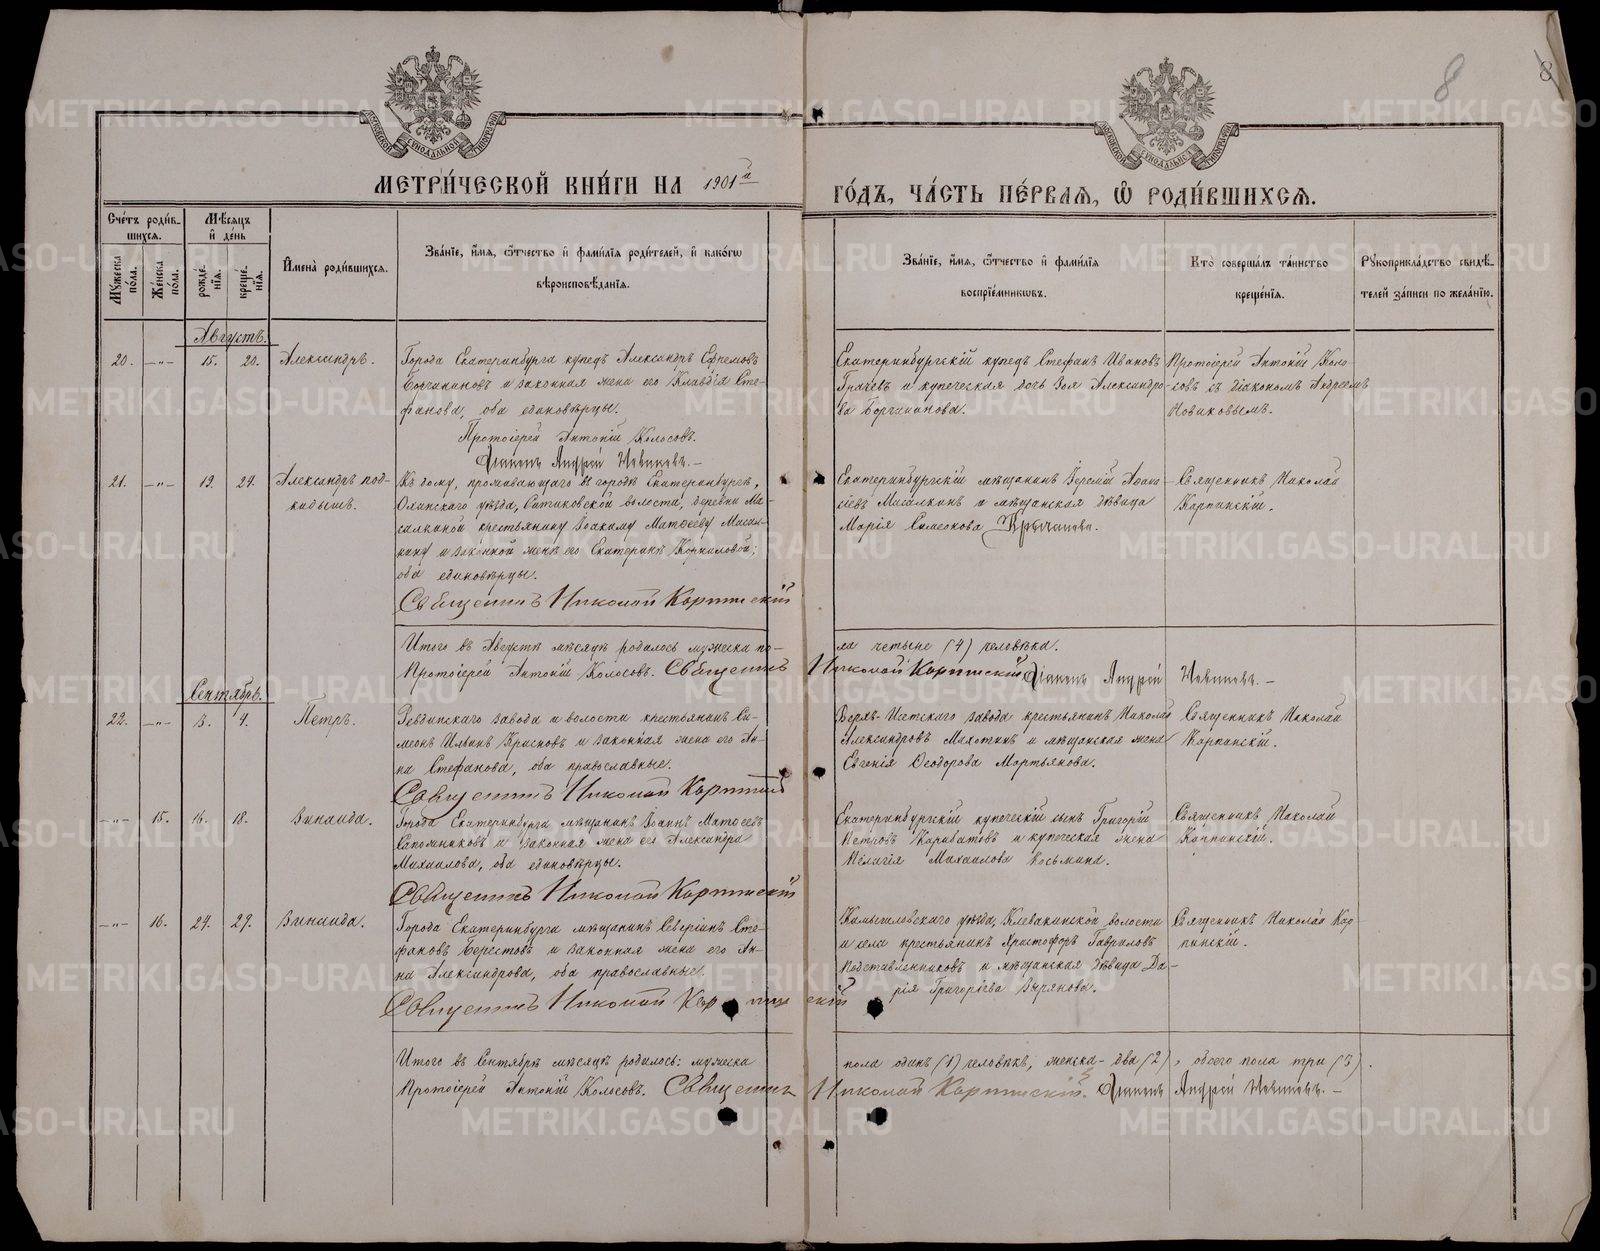 8
МЕТРИ́ЧЕСКОЙ КНИ́ГИ НА 1901й
ГО́ДЪ, ЧА́СТЬ ПЕ́РВАѦ, Ѡ҆ РОДИ́ВШИХСѦ.
Сче́тъ роди́вшихсѧ.
Мꙋ́жеска по́ла.
Же́нска по́ла.
Мѣ́сѧцъ и҆ де́нь
рожде́нїѧ.
креще́нїѧ.
И҆мена̀ роди́вшихсѧ.
Зва́нїе, и҆́мѧ, ѻ҆́тчество и҆ фами́лїѧ роди́телей, и҆ како́гѡ
вѣроисповѣ́данїѧ.
Зва́нїе, и҆́мѧ, ѻ҆́тчество и҆ фами́лїѧ
воспрїе́мникѡвъ.
Кто̀ соверша́лъ та́инство
креще́нїѧ.
Рꙋкоприкла́дство свидѣ́телей за́писи по жела́нїю.
Августъ.
20. —„— 15. 20. Александръ.
Города Екатеринбурга купецъ Александръ Ефремовъ
Борчаниновъ и законная жена его Клавдія Сте-
фанова, оба единовѣрцы.
Протоіерей Антоній Колосовъ.
Діаконъ Андрей Новиковъ. —
Екатеринбургскій купецъ Стефанъ Ивановъ
Грачевъ и купеческая дочь Зоя Александро-
ва Борчанинова.
Протоіерей Антоній Коло-
совъ съ діакономъ Андреемъ
Новиковымъ.
21. —„— 19. 24. Александръ под-
кидышъ.
Къ дому, проживающаго въ городѣ Екатеринбургѣ,
уѣзда, волости, деревни Ма-
салкиной крестьянину Іоакиму Матѳееву Масал-
кину и законной женѣ его Екатеринѣ Корниловой;
оба единовѣрцы.
Священникъ Николай Карпинскій
Екатеринбургскій мѣщанинъ
и мѣщанская дѣвица
Марія Симеонова
Священникъ Николай
Карпинскій.
Итого въ Августѣ мѣсяцѣ родилось мужеска по-
ла четыре (4) человѣка.
Протоіерей Антоній Колосовъ. Священникъ Николай Карпинскій Діаконъ Андрей Новиковъ. —
Сентябрь.
22. —„— 3. 4. Петръ.
Ревдинскаго завода и волости крестьянинъ Си-
меонъ Ильинъ Красновъ и законная жена его Ан-
на Стефанова, оба православные.
Священникъ Николай Карпинскій
Верхъ-Исетскаго завода крестьянинъ Николай
Александровъ Махотинъ и мѣщанская жена
Евгенія Ѳеодорова Мартьянова.
Священникъ Николай
Карпинскій.
—„— 15. 16. 18. Зинаида.
Города Екатеринбурга мѣщанинъ Іоаннъ Матѳеевъ
Сапожниковъ и законная жена его Александра
Михаилова, оба единовѣрцы.
Священникъ Николай Карпинскій
Екатеринбургскій купеческій сынъ Григорій
Петровъ Караватовъ и купеческая жена
Пелагія Михаилова Козьмина.
Священникъ Николай
Карпинскій.
—„— 16. 24. 29. Зинаида.
Города Екатеринбурга мѣщанинъ Северіанъ Сте-
фановъ Берестовъ и законная жена его Ан-
на Александрова, оба православные.
Священникъ Николай Карпинскій
Камышловскаго уѣзда, Клевакинской волости
и села крестьянинъ Христофоръ Гавриловъ
Подставленниковъ и мѣщанская дѣвица Да-
рія Григоріева Зырянова.
Священникъ Николай Кар-
пинскій.
Итого въ Сентябрѣ мѣсяцѣ родилось: мужеска
пола одинъ (1) человѣкъ, женска – два (2), обоего пола три (3).
Протоіерей Антоній Колосовъ. Священникъ Николай Карпинскій. Діаконъ Андрей Новиковъ. —
METRIKI.GASO-URAL.RU